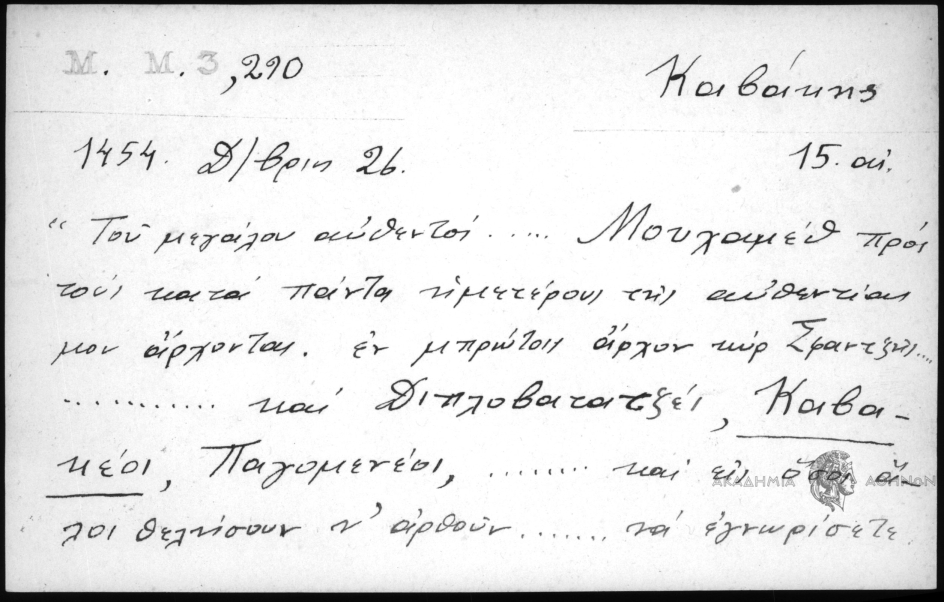 Μ. Μ. 3, 290
Καβάκης
1454. Δ/βρίη 26.
15. αἰ.
" Τοῦ μεγάλου αὐθεντός ..... Μουχαμέθ πρός
τούς κατά πάντα ἡμετέρους τῆς αὐθεντίας
μου ἄρχοντας. ἐν μπρώτοις ἄρχον κύρ Σφαντζῆς....
........... καί Διπλοβατατζέοι, Καβα-
κέοι, Παγομενέοι, ........ καί εἰς ὅσοι ἄ-
λοι θελήσουν ν' ἀρθοῦν ....... νά ἐγνωρίσετε
ΑΚΑΔΗΜΙΑ ΑΘΗΝΩΝ